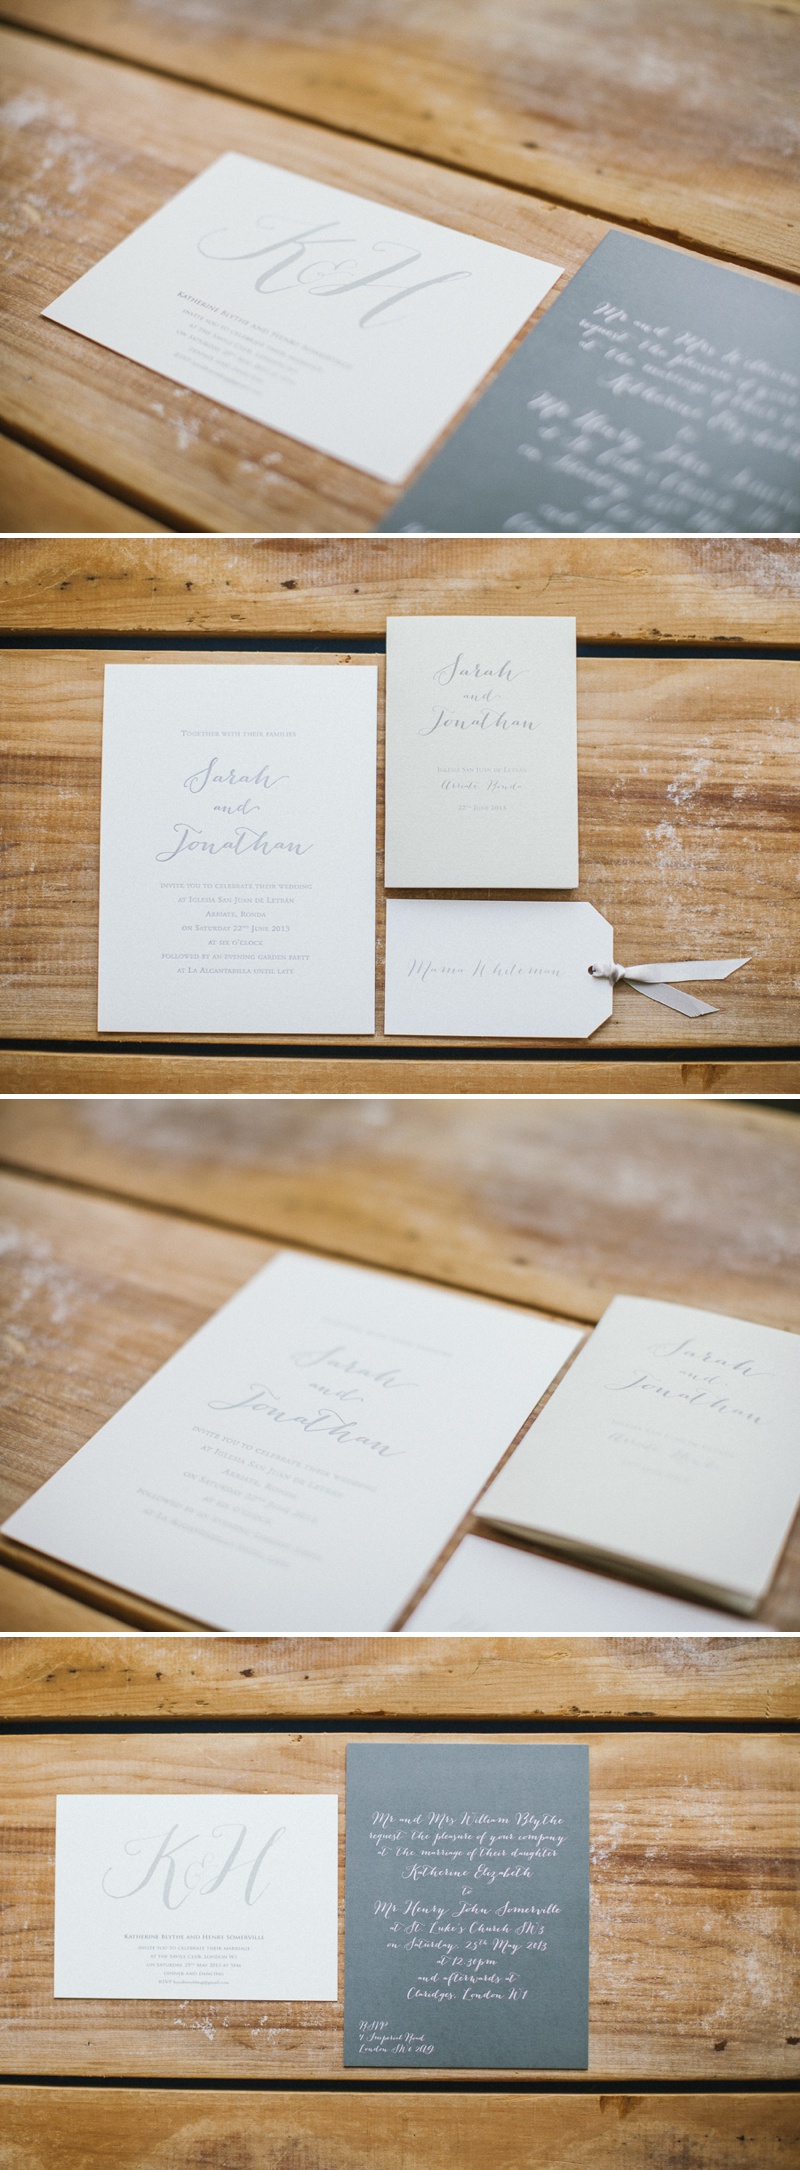 K&H
Katherine Blythe and Henry Somerville
invite you to celebrate their
on Saturday 25th May
Mr and Mrs William
request the pleasure of your
at the marriage of their
Katherine Elizabeth
to
Mr Henry John
at St Luke's Church
on Saturday 25th
Together with their families
Sarah
and
Jonathan
invite you to celebrate their wedding
at Iglesia San Juan de Letrán
Arriate, Ronda
on Saturday 22nd June 2013
at six o'clock
followed by an evening garden party
at La Alcantarilla until late
Sarah
and
Jonathan
Iglesia San Juan de Letrán
Arriate Ronda
22nd June 2013
Mama Whiteman
Sarah
and
Jonathan
invite you to celebrate their wedding
at Iglesia San Juan de Letrán
Arriate, Ronda
on Saturday 22nd June 2013
at six o'clock
followed by an evening garden party
Sarah
and
Jonathan
K&H
Katherine Blythe and Henry Somerville
invite you to celebrate their marriage
at the Savile Club, London W1
on Saturday, 25th May 2013 at 5pm
dinner and dancing
RSVP
Mr and Mrs William Blythe
request the pleasure of your company
at the marriage of their daughter
Katherine Elizabeth
to
Mr Henry John Somerville
at St. Luke's Church SW3
on Saturday, 25th May, 2013
at 12.30pm
and afterwards at
Claridges, London W1
RSVP
4 Imperial Road
London SW6 2UG